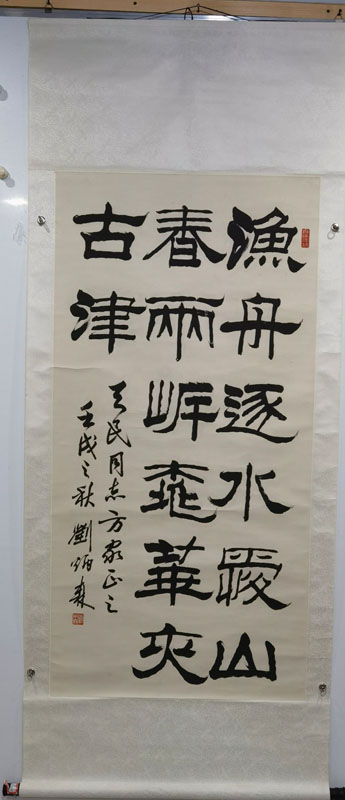 漁舟逐水愛山
春兩岸桃華夾
古津
天民同志方家正之
壬戌之秋 劉炳森